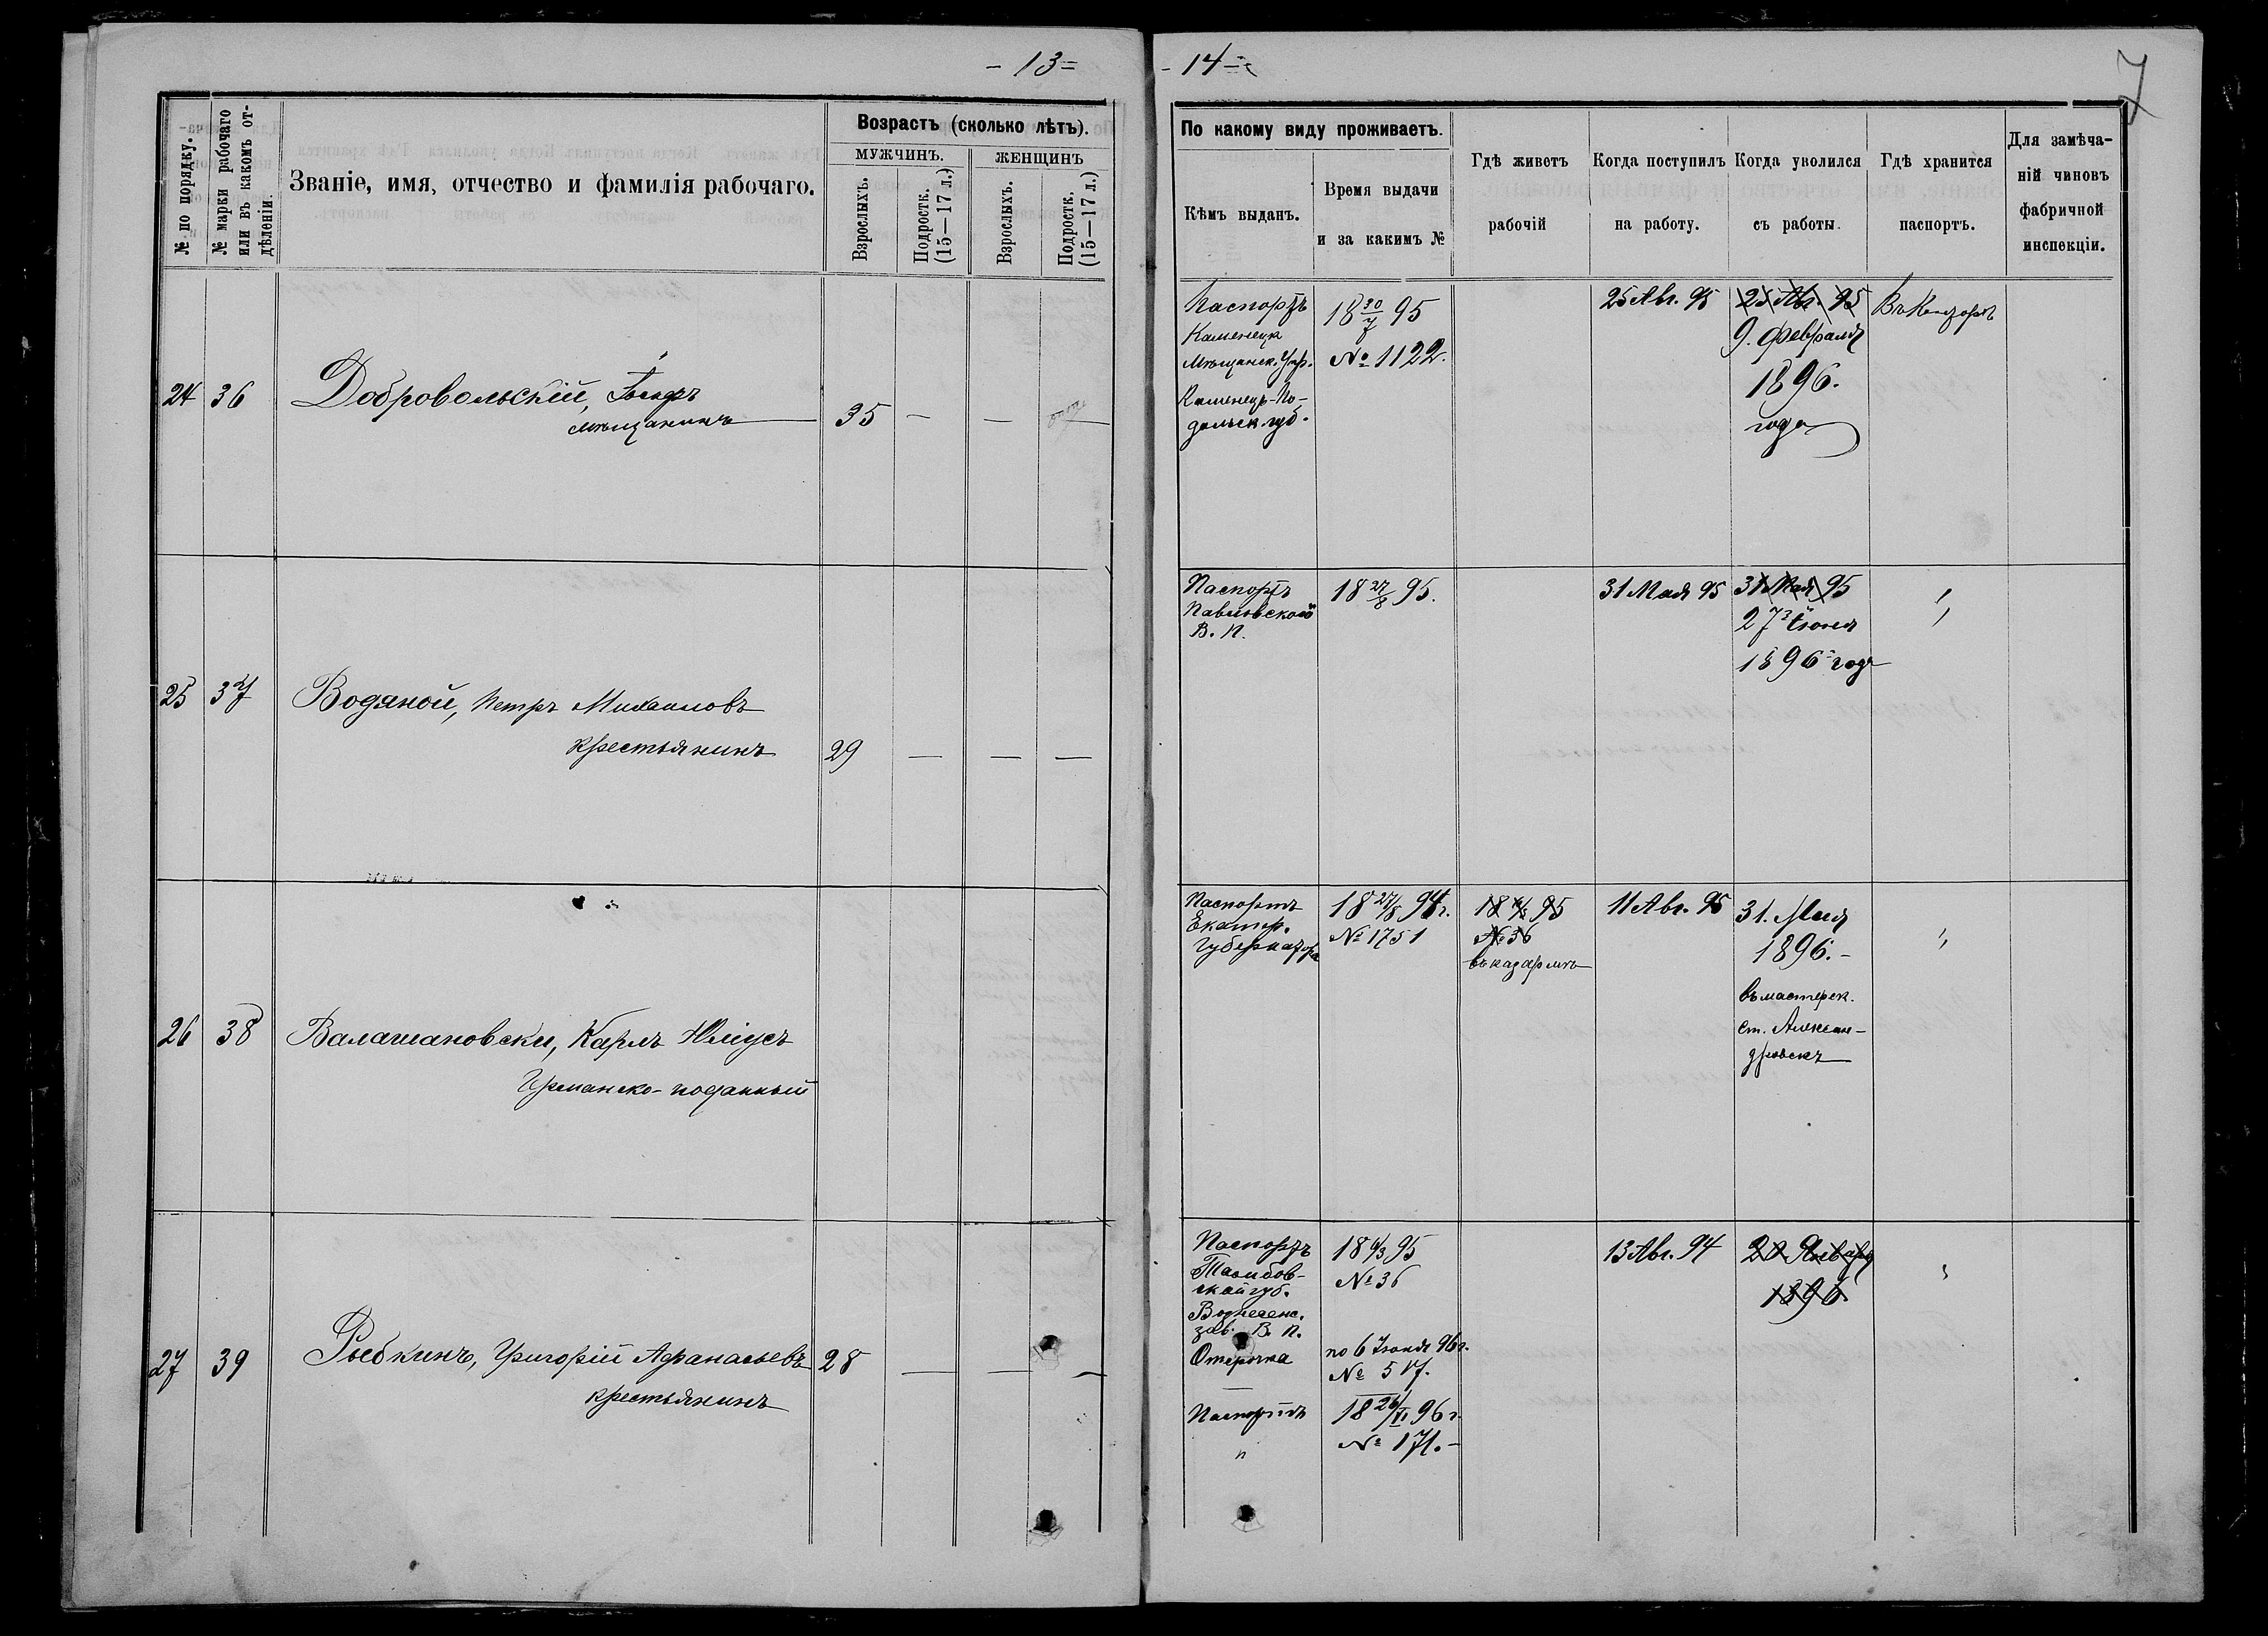 - 13 =
№ по порядку.
№ марки рабочаго
или въ какомъ от-
дѣленіи.
Званіе, имя, отчество и фамилія рабочаго.
Возрастъ (сколько лѣтъ).
МУЖЧИНЪ.
ЖЕНЩИНЪ
Взрослыхъ.
Подростк.
(15—17 л.)
Взрослыхъ.
Подростк.
(15—17 л.)
24 36 Добровольскій,
мѣщанинъ 35 — —
25 37 Водяной, Петръ Михаиловъ
крестьянинъ 29 — — —
26 38 Валашановски, Карлъ Юліусъ
Германско-поданный
27 39 Рыбкинъ, Григорій Афанасьевъ 28 — — —
крестьянинъ
- 14 -
7
По какому виду проживаетъ.
Кѣмъ выданъ.
Время выдачи
и за какимъ №
Гдѣ живетъ
рабочій
Когда поступилъ
на работу.
Когда уволился
съ работы.
Гдѣ хранится
паспортъ.
Для замѣча-
ній чиновъ
фабричной
инспекціи.
Паспортъ
Каменецк
Мѣщанск. Упр.
Каменецъ-По-
дольск. губ.
18 30/7 95
№ 1122.
25 Авг. 95
25 Авг. 95
9. Февраля
1896.
года
Въ Конторѣ
Паспортъ
Павловской
В. П.
18 27/8 95.
31 Мая 95
31 Мая 95
27 Іюня
1896 года
"
Паспортъ
Екатер.
Губернатора
18 27/8 94 г.
№ 1751
18 6/3 95
№ 36
въ казармѣ
11 Авг. 95
31. Мая
1896. -
въ мастерск.
ст. Алексан-
дровскъ
"
Паспортъ
Тамбов-
ской губ.
Вознесенс.
зав. В. П.
Отсрочка
18 6/3 95
№ 36
по 6 Іюня 96 г.
№ 517.
Паспортъ
"
18 26/VI 96 г.
№ 171. -
13 Авг. 94
20 Января
1896
"